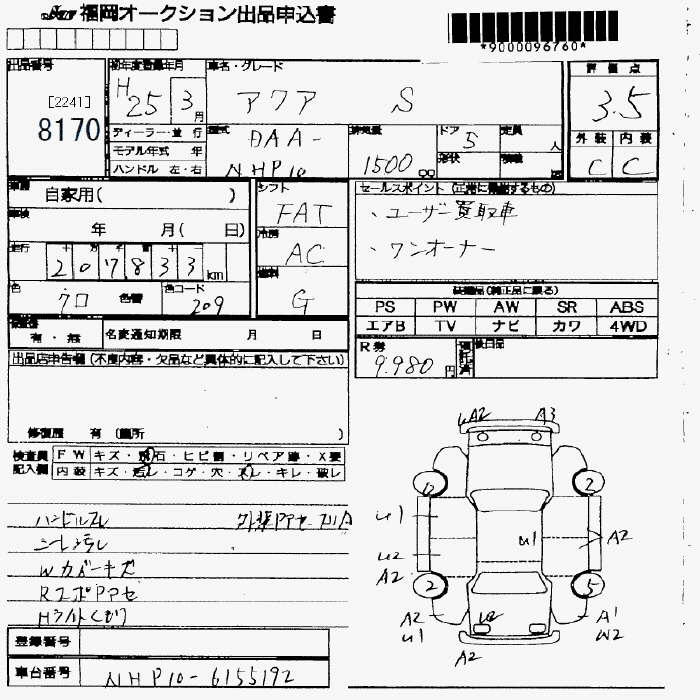 福岡オークション出品申込書
*9000096760*
出品番号
[2241]
8170
初年度登録年月
H25 3 月
ディーラー・並行
モデル年式 年
ハンドル 左・右
車名・グレード
アクア S
型式
DAA-
NHP10
排気量
1500 CC
ドア
5
形状
定員
人
積載
評価点
3.5
外装 内装
C C
車歴
自家用( )
車検
年 月( 日)
走行
207833 km
色
クロ
色替
カラーコード
209
シフト
FAT
冷房
AC
燃料
G
セールスポイント (正常に機能するもの)
・ユーザー買取車
・ワンオーナー
装備品(純正品に限る)
PS PW AW SR ABS
エアB TV ナビ カワ 4WD
有・無
名変通知期限 月 日
R券
9.980 円
預託済
後日品
出品店申告欄(不良内容・欠品など具体的に記入して下さい)
修復歴 有 (箇所 )
検査員
記入欄
FW キズ・飛石・ヒビ割・リペア跡・X要
内装 キズ・汚レ・コゲ・穴・スレ・キレ・破レ
ハンドルスレ
外装PPセースリA
シートスレ
Wカバーキズ
RエンボPPセ
Hライトくもり
uA2 A3
2
u1
u2
A2
u1
A2
2 5
A2
u1
U2
A1
W2
A2
登録番号
車台番号
NHP10-6155192